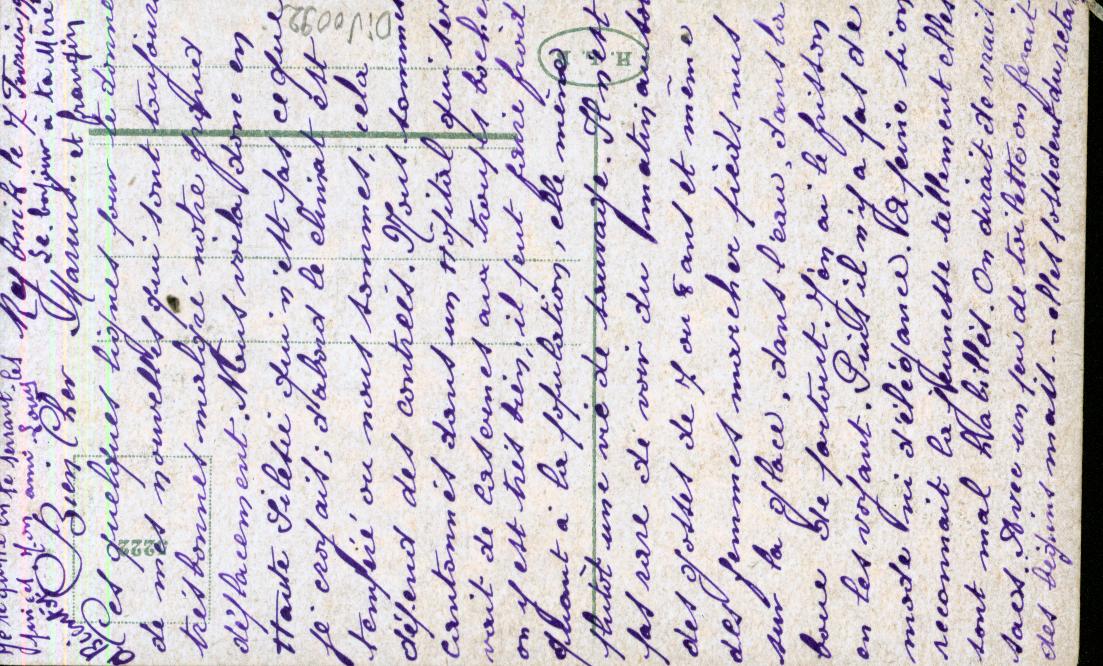 Je te quitte en te serrant les
pinces ton ami Louis
Rybnik le 7 Février 19
Le bonjour à ta Mère
Bien Cher et frangin
Ces quelques lignes pour te donner
de mes nouvelles qui sont toujours
très bonnes malgré notre grand
déplacement. Nous voilà donc en
Haute Silésie qui n'est pas ce que
je croyais; d'abord le climat est
tempéré où nous sommes; cela
dépend des contrées. Nous sommes
cantonnés dans un Hôpital qui ser
vait de casernes aux troupes boches
on y est très bien, il peut faire froid
quant à la population, elle mène
plutôt une vie de sauvage. Il n'est
pas rare de voir du matin au soir
des gosses de 7 ou 8 ans et même
des femmes marcher pieds nus
sur la glace, dans l'eau, dans la
boue partout. J'en ai le frisson
en les voyant. Puis il n'y a pas de
mode ni d'élégance. à peine si on
reconnait la jeunesse tellement elles
sont mal habillés. On dirait de vrais
sacs; Avec un peu de toilette on ferait
des béguins mais... elles possèdent du reste
DiV 0092
H. S. K
5222